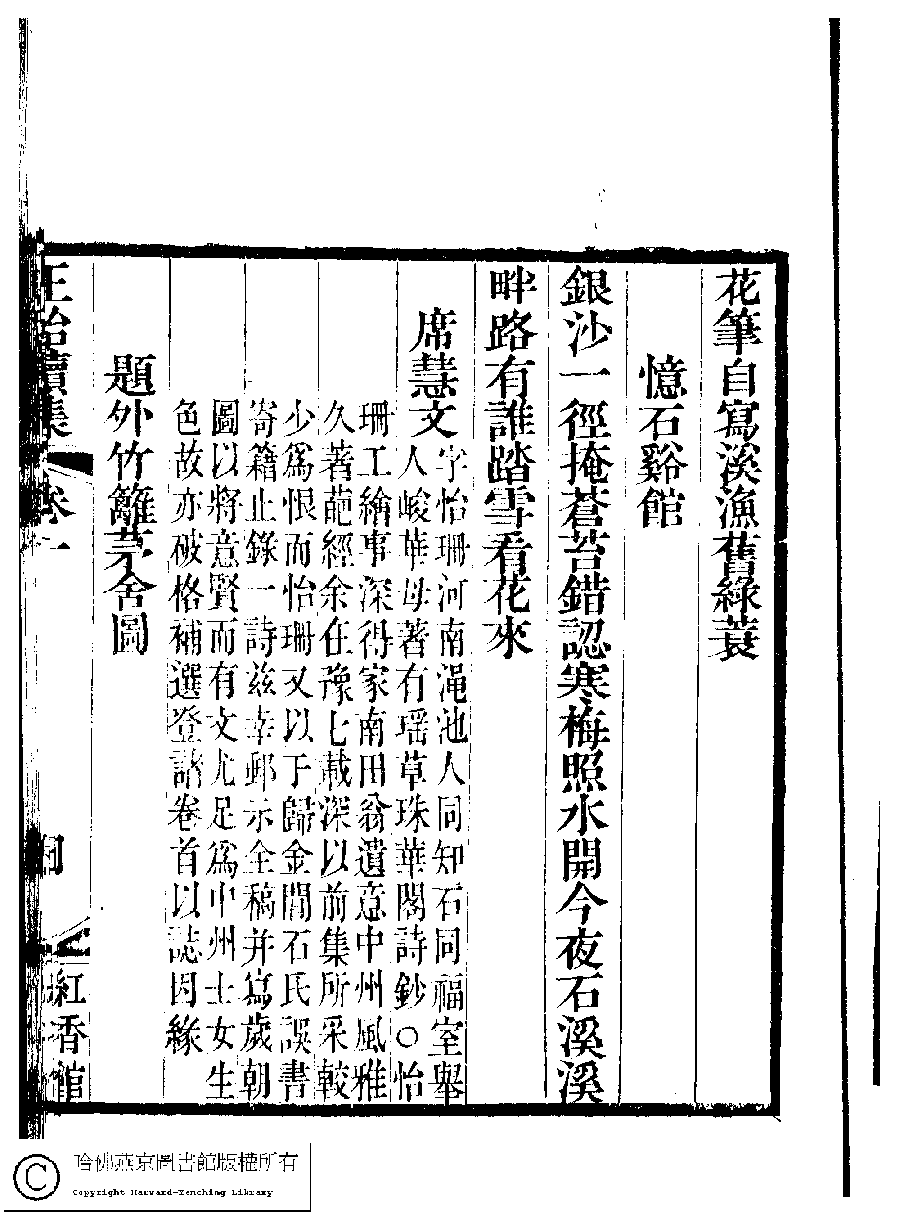 花筆自寫溪漁舊綠蓑
憶石谿館
銀沙一徑掩蒼苔錯認寒梅照水開今夜石溪溪
畔路有誰踏雪看花來
席慧文
字怡珊河南澠池人同知石同福室舉
人峻華母著有瑶草珠華閣詩鈔○怡
珊工繪事深得家南田翁遺意中州風雅
久著葩經余在豫七載深以前集所采較
少爲恨而怡珊又以于歸金閶石氏誤書
寄籍止錄一詩兹幸郵示全稿并寫歲朝
圖以將意賢而有文尤足爲中州士女生
色故亦破格補選登諸卷首以誌因緣
題外竹籬茅舍圖
正始續集 卷一
四
紅香館
哈佛燕京圖書館版權所有
Copyright Harvard-Yenching Library